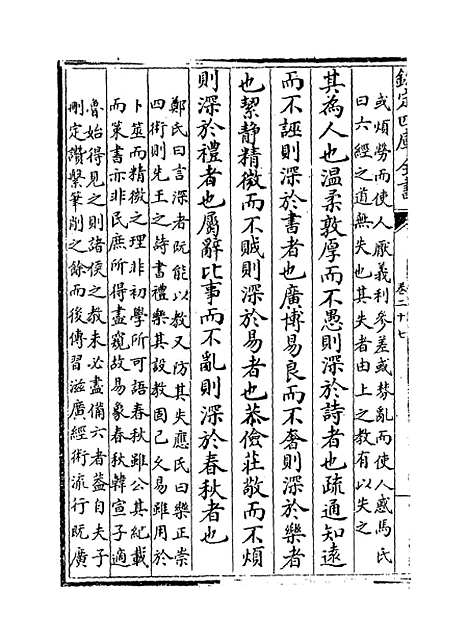 欽定四庫全書
卷二十七
或煩勞而使人厭義利參差或棼亂而使人惑馬氏
曰六經之道無失也其失者由上之教有以失之
其為人也温柔敦厚而不愚則深於詩者也疏通知遠
而不誣則深於書者也廣博易良而不奢則深於樂者
也絜静精微而不賊則深於易者也恭儉莊敬而不煩
則深於禮者也屬辭比事而不亂則深於春秋者也
鄭氏曰言深者既能以教又防其失應氏曰樂正崇
四術則先王之詩書禮樂其設教固已久易雖用於
卜筮而精微之理非初學所可語春秋雖公其紀載
而策書亦非民庶所得盡窺故易象春秋韓宣子適
魯始得見之則諸侯之教未必盡備六者蓋自夫子
刪定讚繫筆削之餘而後傳習滋廣經術流行既廣